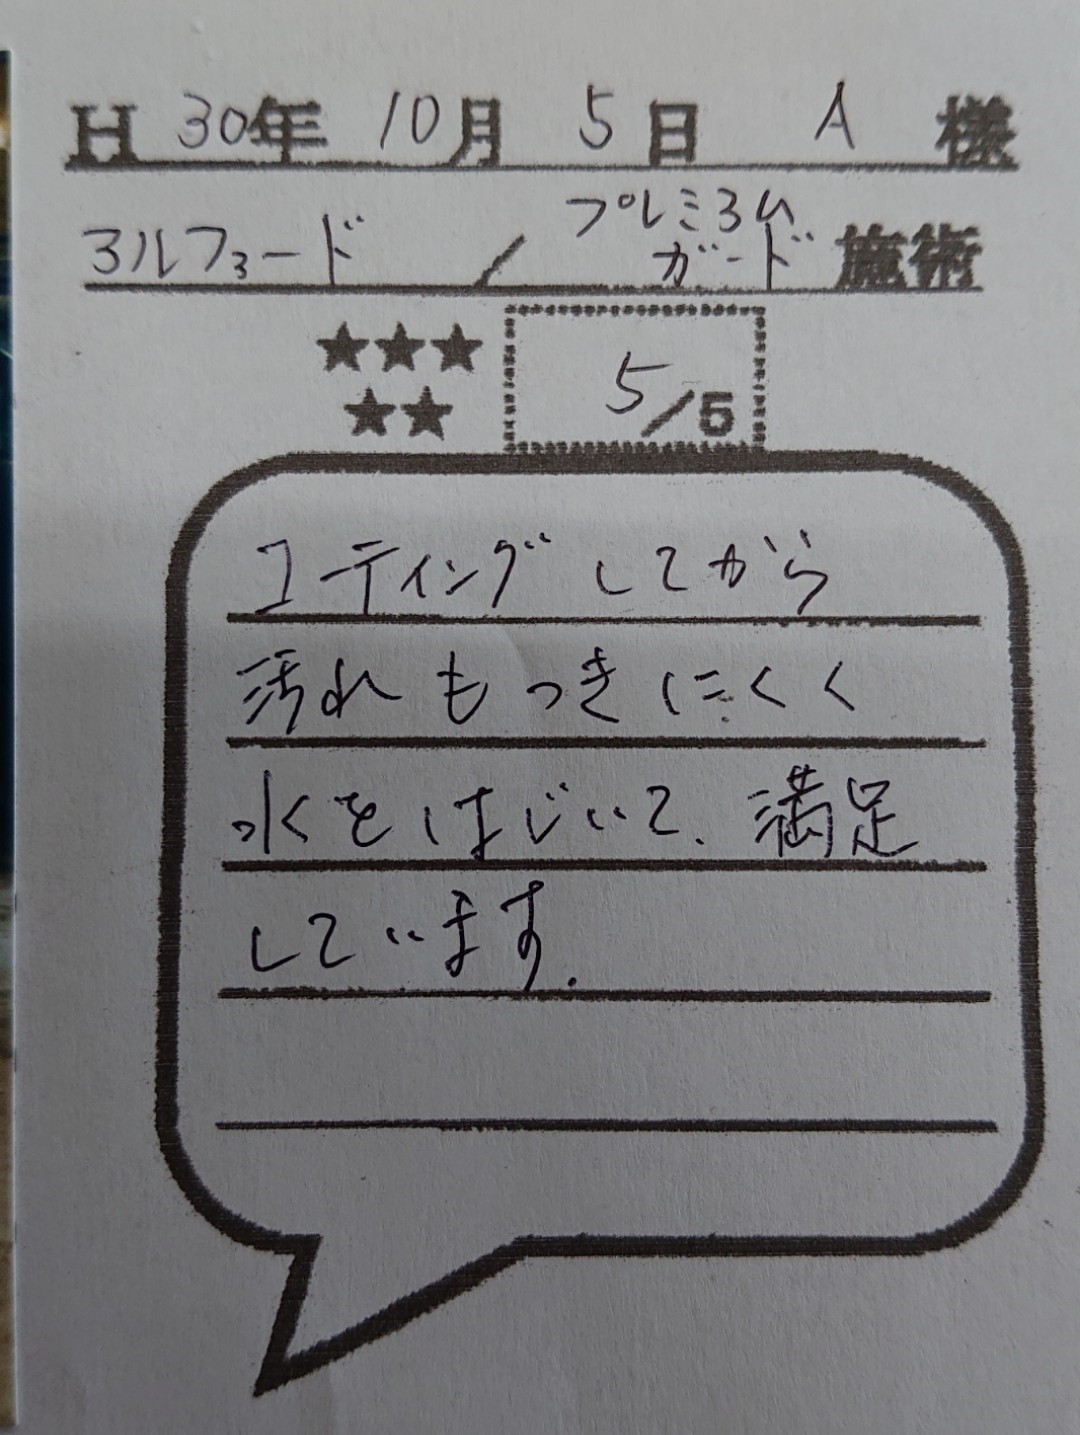 H 30年 10月 5日 A 様
アルファード / プレミアムガード 施術
★★★
★★
5/5
コーティングしてから
汚れもつきにくく
水をはじいて、満足
しています.